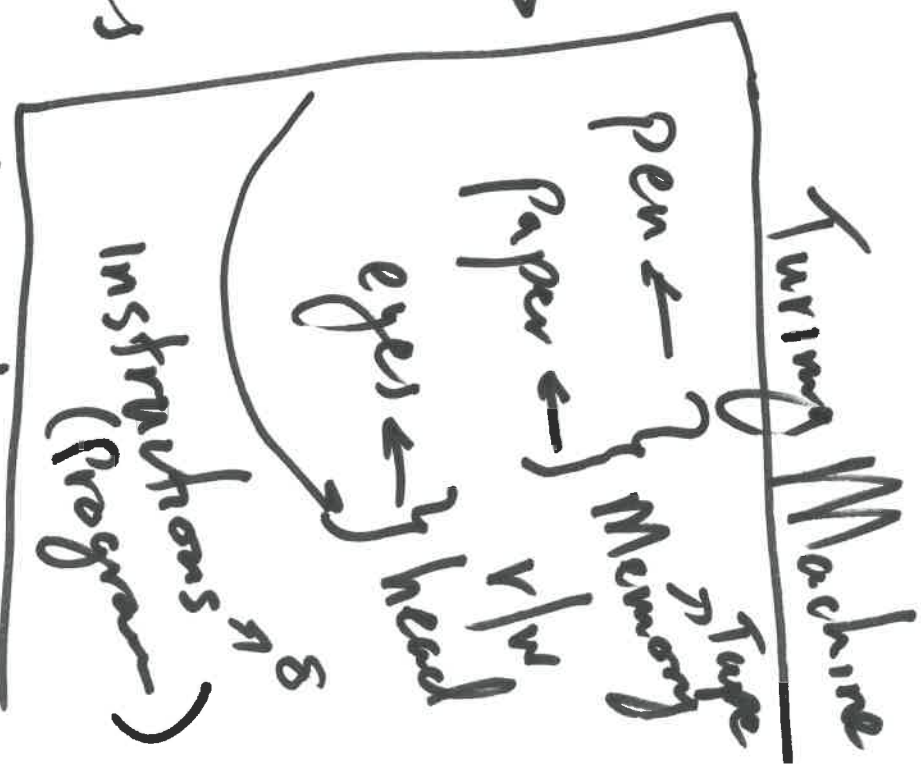 Turing Machine
Pen ← } Memory → Tape
Paper ←
eyes ← } r/w head
Instructions → δ
(Program)